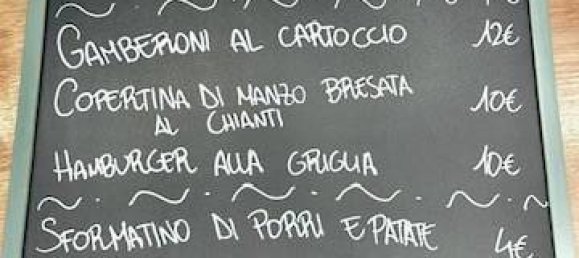 GAMBERONI AL CARTOCCIO 12€
COPERTINA DI MANZO BRESATA 10€
AL CHIANTI
HAMBURGER ALLA GRIGLIA 10€
SFORMATINO DI PORRI E PATATE 4€